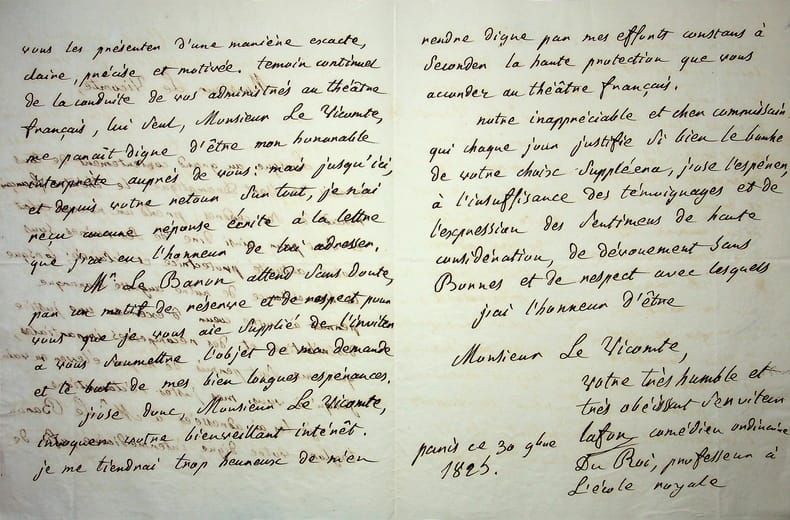 vous les présenter d'une manière exacte,
claire, précise et motivée. temoin continuel
de la conduite de vos administrés au théâtre
français, lui seul, Monsieur Le Vicomte,
me paraît digne d'être mon honorable
interprète auprès de vous: mais jusqu'ici,
et depuis votre retour surtout, je n'ai
reçu aucune réponse écrite à la lettre
que j'ai eu l'honneur de lui adresser.
Mr Le Baron attend sans doute,
par un motif de reserve et de respect pour
vous que je vous aie supplié de l'inviter
a vous soumettre l'objet de ma demande
et le but de mes bien longues espérances.
j'ose donc, Monsieur Le Vicomte,
invoquer votre bienveillant intérêt.
je me tiendrai trop heureux de m'en
rendre digne par mes efforts constans à
seconder la haute protection que vous
accordez au théâtre français.
notre inappréciable et cher commissaire
qui chaque jour justifie si bien le bonheur
de votre choix suppléera, j'ose l'espérer,
à l'insuffisance des témoignages et de
l'expression des sentimens de haute
considération, de dévouement sans
Bornes et de respect avec lesquels
j'ai l'honneur d'être
Monsieur Le Vicomte,
votre très humble et
très obéissant serviteur
lafon, comédien ordinaire
Du Roi, professeur à
L'école royale
paris ce 30 9bre
1825.